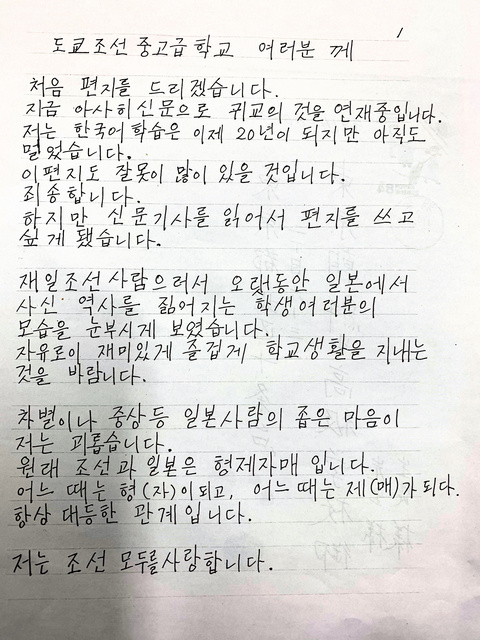 1
도쿄조선 중고급 학교 여러분 께
처음 편지를 드리겠습니다.
지금 아사히신문으로 귀교의 것을 연재중입니다.
저는 한국어 학습은 이제 20년이 되지만 아직도
멀었습니다.
이편지도 잘못이 많이 있을 것입니다.
죄송합니다.
하지만 신문기사를 읽어서 편지를 쓰고
싶게 됐습니다.
재일조선사람으러서 오랫동안 일본에서
사신 역사를 짊어지는 학생여러분의
모습을 눈부시게 보였습니다.
자유로이 재미있게 즐겁게 학교생활을 지내는
것을 바람니다.
차별이나 중상등 일본사람의 좁은 마음이
저는 괴롭습니다.
원래 조선과 일본은 형제자매 입니다.
어느 때는 형(자)이되고, 어느 때는 제(매)가 되다.
항상 대등한 관계입니다.
저는 조선 모두를사랑합니다.